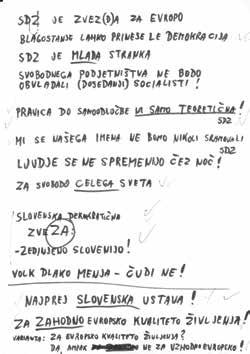 SDZ JE ZVEZ(D)A ZA EVROPO
BLAGOSTANJE LAHKO PRINESE LE DEMOKRACIJA
SDZ JE MLADA STRANKA
SVOBODNEGA PODJETNIŠTVA NE BODO
OBVLADALI (DOSEDANJI) SOCIALISTI!
PRAVICA DO SAMOODLOČBE NI SAMO TEORETIČNA!
SDZ
MI SE NAŠEGA IMENA NE BOMO NIKOLI SRAMOVALI
SDZ
LJUDJE SE NE SPREMENIJO ČEZ NOČ!
ZA SVOBODO CELEGA SVETA
SLOVENSKA DEMOKRATIČNA
ZVEZA:
-ZEDINJENO SLOVENIJO!
VOLK DLAKO MENJA - ČUDI NE!
NAJPREJ SLOVENSKA USTAVA!
ZA ZAHODNO EVROPSKO KVALITETO ŽIVLJENJA!
VARIANTA: ZA EVROPSKO KVALITETO ŽIVLJENJA?
DA, AMPAK NE ZA VZHODNOEVROPSKO!